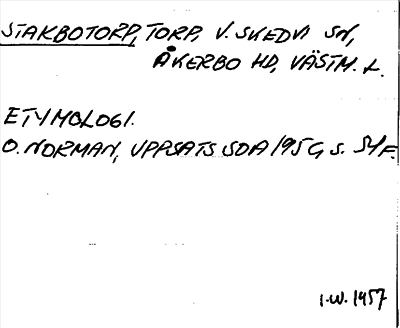 STAKBOTORP, TORP, V. SKEDVI SN,
ÅKERBO HD, VÄSTM. L.
ETYMOLOGI.
O. NORMAN, UPPSATS SOA 195G s. 51 F.
I.W. 1957